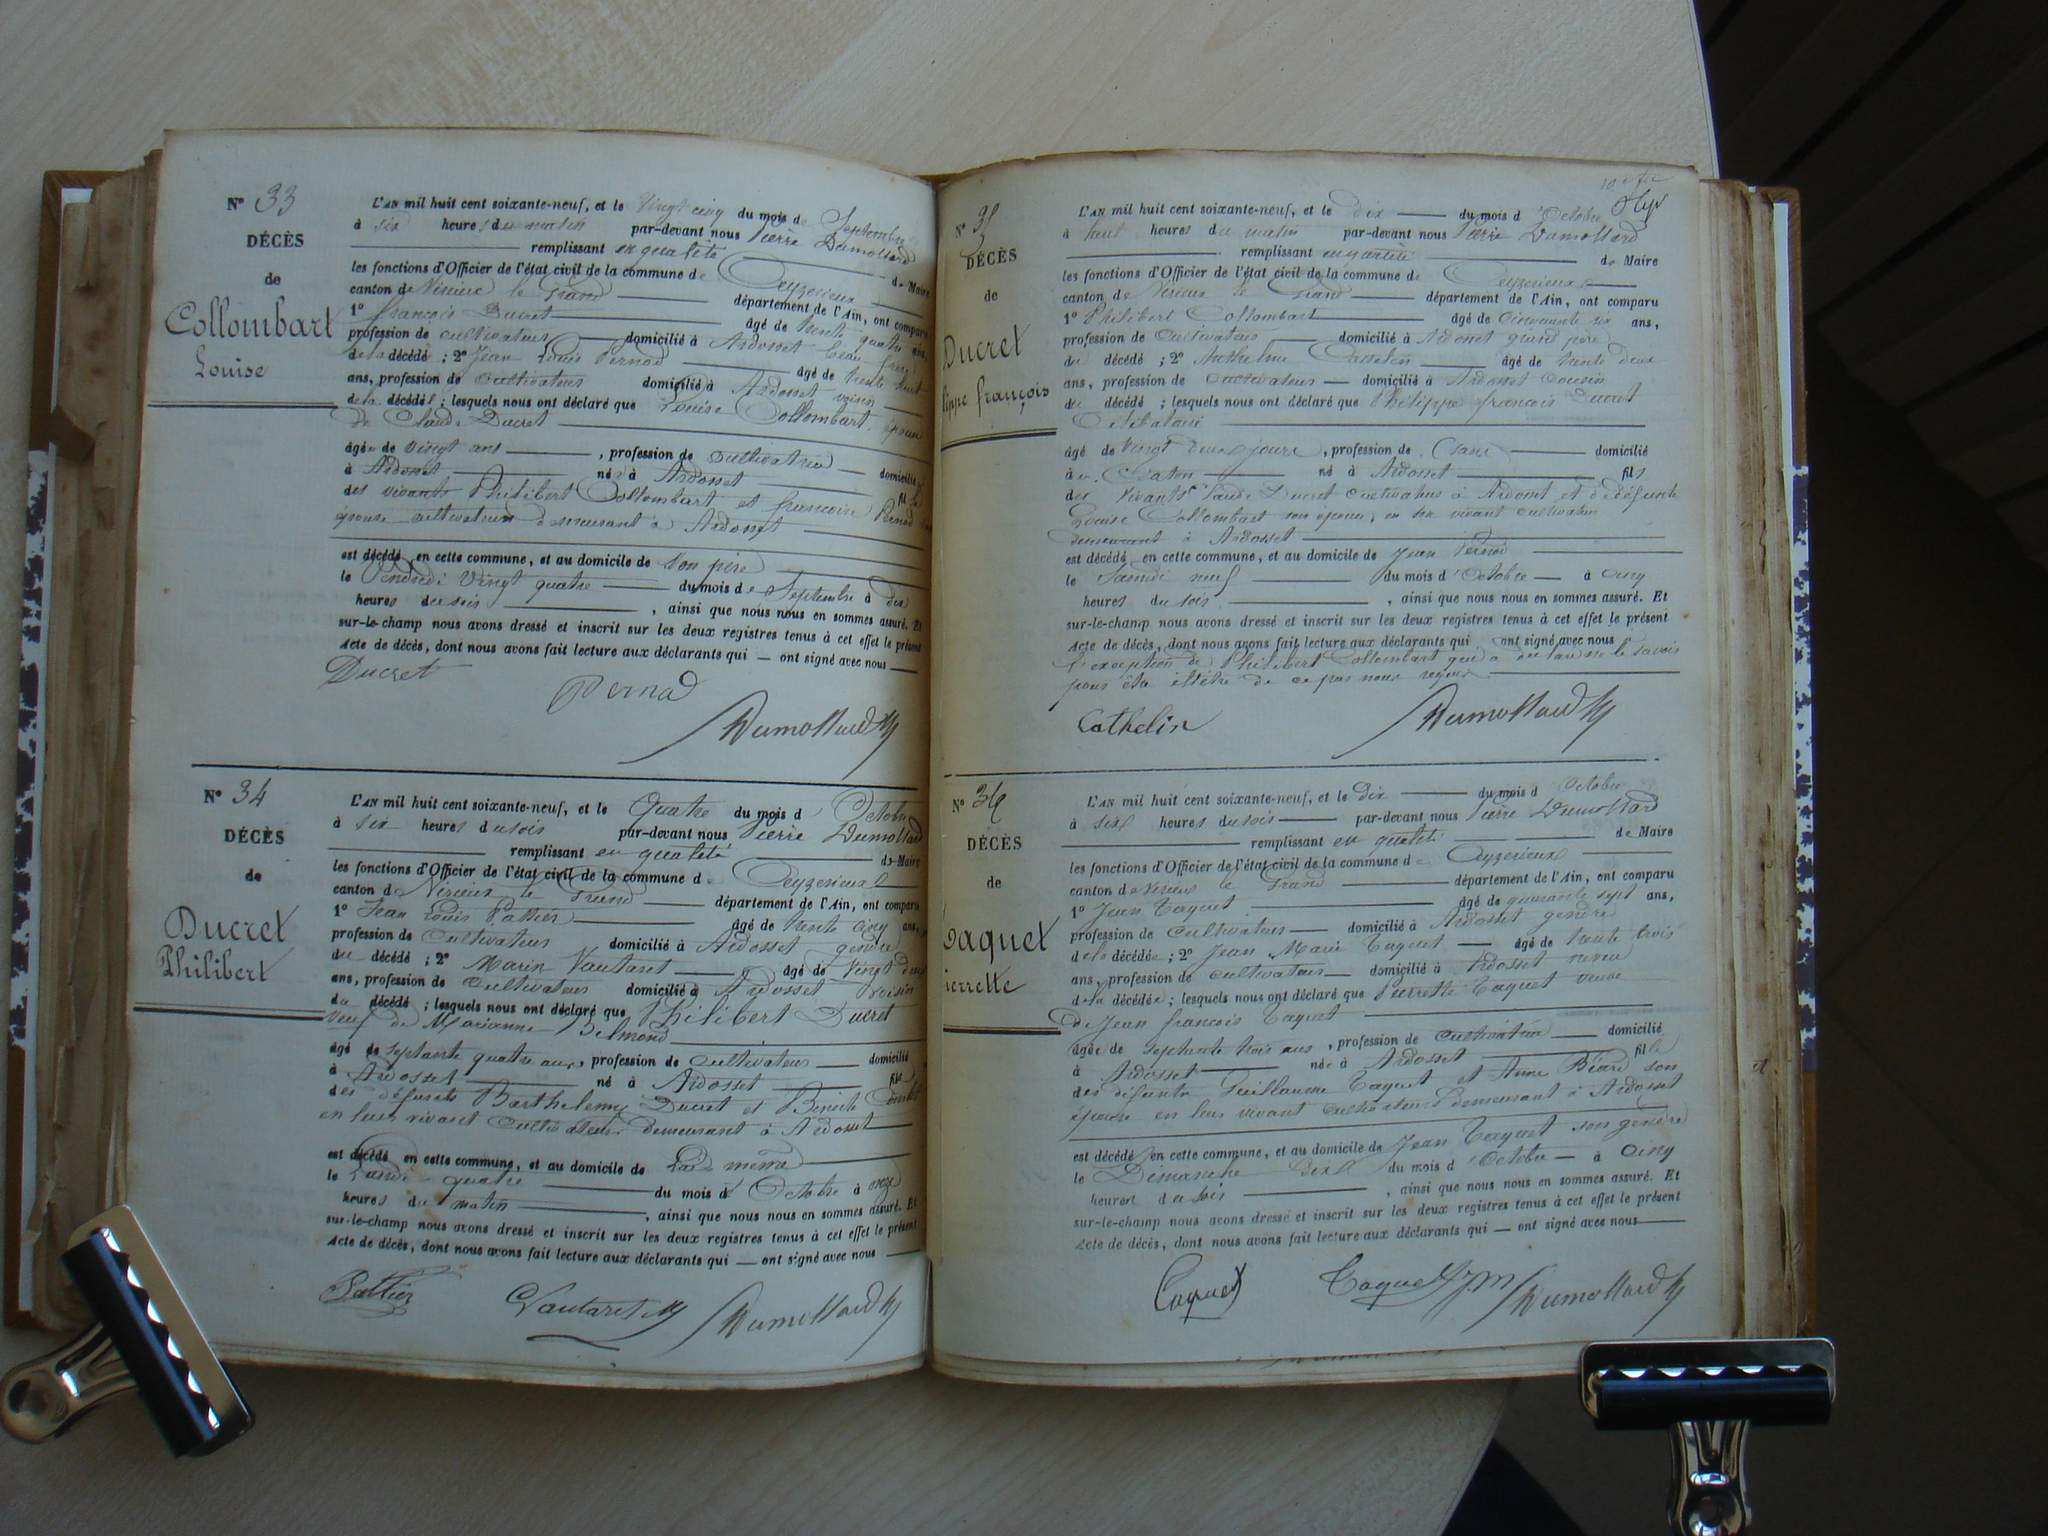 N° 33
DÉCÈS
de
Collombart
Louise
L'AN mil huit cent soixante-neuf, et le Vingt cinq du mois de Septembre
à six heures du matin par-devant nous Pierre Dumollard
remplissant en qualité de Maire
les fonctions d'Officier de l'état civil de la commune de Ceyzerieux
canton de Virieux le Grand département de l'Ain, ont comparu
1° françois Ducret âgé de trente quatre ans,
profession de cultivateur domicilié à Ardosset beau frère
de la décédé ; 2° Jean Louis Pernod âgé de trente huit
ans, profession de cultivateur domicilié à Ardosset voisin
de la décédé ; lesquels nous ont déclaré que Louise Collombart, épouse
de Claude Ducret
âgée de vingt ans , profession de cultivatrice domicilié
à Ardosset né à Ardosset fille
des vivants Philibert Collombart et françoise Pernod son
épouse cultivateurs demeurant à Ardosset
est décédé en cette commune, et au domicile de son père
le Vendredi vingt quatre du mois de Septembre à dix
heures du soir , ainsi que nous nous en sommes assuré. Et
sur-le-champ nous avons dressé et inscrit sur les deux registres tenus à cet effet le présent
Acte de décès, dont nous avons fait lecture aux déclarants qui — ont signé avec nous
Ducret
Pernod
Dumollard
N° 34
DÉCÈS
de
Ducret
Philibert
L'AN mil huit cent soixante-neuf, et le Quatre du mois d'Octobre
à six heures du soir par-devant nous Pierre Dumollard
remplissant en qualité de Maire
les fonctions d'Officier de l'état civil de la commune de Ceyzerieux
canton de Virieux le Grand département de l'Ain, ont comparu
1° Jean Louis Pallier âgé de trente cinq ans,
profession de cultivateur domicilié à Ardosset gendre
du décédé ; 2° Marin Vautaret âgé de vingt deux
ans, profession de cultivateur domicilié à Ardosset voisin
du décédé ; lesquels nous ont déclaré que Philibert Ducret
veuf de Marianne Belmond
âgé de septante quatre ans, profession de cultivateur domicilié
à Ardosset né à Ardosset fils
des défunts Barthelemy Ducret et Benoite
en leur vivant cultivateurs demeurant à Ardosset
est décédé en cette commune, et au domicile de lui même
le Lundi quatre du mois d'Octobre à onze
heures du matin , ainsi que nous nous en sommes assuré. Et
sur-le-champ nous avons dressé et inscrit sur les deux registres tenus à cet effet le présent
Acte de décès, dont nous avons fait lecture aux déclarants qui — ont signé avec nous
Pallier
Vautaret M
Dumollard
N° 35
DÉCÈS
de
Ducret
lippe françois
L'AN mil huit cent soixante-neuf, et le Dix du mois d'Octobre
à huit heures du matin par-devant nous Pierre Dumollard
remplissant en qualité de Maire
les fonctions d'Officier de l'état civil de la commune de Ceyzerieux
canton de Virieux le Grand département de l'Ain, ont comparu
1° Philibert Collombart âgé de cinquante six ans,
profession de cultivateur domicilié à Ardosset grand père
du décédé ; 2° Anthelme Cathelin âgé de trente deux
ans, profession de cultivateur domicilié à Ardosset cousin
du décédé ; lesquels nous ont déclaré que Philippe françois Ducret
Célibataire
âgé de vingt deux jours , profession de (sans) domicilié
à né à Ardosset fils
des vivants Claude Ducret cultivateur à Ardosset et de défunte
Louise Collombart son épouse, en son vivant cultivatrice
demeurant à Ardosset
est décédé en cette commune, et au domicile de Jean Pernod
le Samedi neuf du mois d'Octobre à cinq
heures du soir , ainsi que nous nous en sommes assuré. Et
sur-le-champ nous avons dressé et inscrit sur les deux registres tenus à cet effet le présent
Acte de décès, dont nous avons fait lecture aux déclarants qui ont signé avec nous
l'exception de Philibert Collombart qui a dit ne le savoir
pour être illétré de ce par nous requis
Cathelin
Dumollard
N° 36
DÉCÈS
de
Taquet
ierrette
L'AN mil huit cent soixante-neuf, et le Dix du mois d'Octobre
à six heures du soir par-devant nous Pierre Dumollard
remplissant en qualité de Maire
les fonctions d'Officier de l'état civil de la commune de Ceyzerieux
canton de Virieux le Grand département de l'Ain, ont comparu
1° Jean Taquet âgé de quarante sept ans,
profession de cultivateur domicilié à Ardosset gendre
de la décédée ; 2° Jean Marie Taquet âgé de trente trois
ans, profession de cultivateur domicilié à Ardosset neveu
de la décédée ; lesquels nous ont déclaré que Pierrette Taquet veuve
de Jean françois Taquet
âgée de septante trois ans , profession de cultivatrice domicilié
à Ardosset née à Ardosset fille
des défunts Guillaume Taquet et Anne Béard son
épouse en leur vivant cultivateurs demeurant à Ardosset
est décédé en cette commune, et au domicile de Jean Taquet son gendre
le Dimanche dix du mois d'Octobre à cinq
heures du soir , ainsi que nous nous en sommes assuré. Et
sur-le-champ nous avons dressé et inscrit sur les deux registres tenus à cet effet le présent
Acte de décès, dont nous avons fait lecture aux déclarants qui — ont signé avec nous
Taquet
Taquet J M
Dumollard